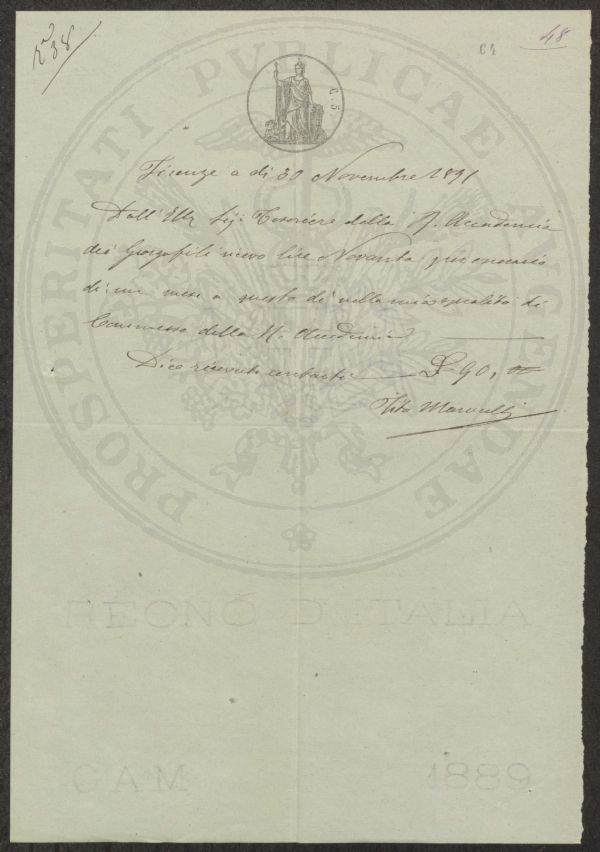 N° 38
64
48
C. 5
PROSPERITATI PVBLICAE AVGENDAE
Firenze a dì 30 Novembre 1891
Dall' Ill. Sig. Tesoriere della R. Accademia
dei Georgofili ricevo lire Novanta, per onorario
di un mese a questo dì nella mia qualità di
Commesso della R. Accademia
Dico ricevute contanti £ 90,
Tito
REGNO D'ITALIA
CAM 1889